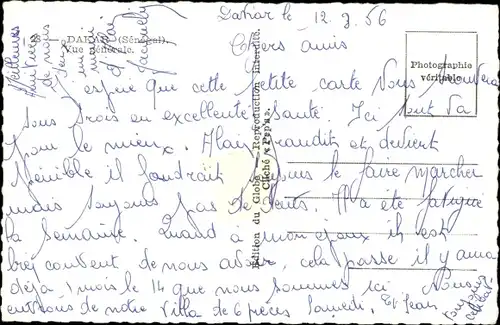 DAKAR (Sénégal).
Vue générale.
Dakar le 12.3.56
Chers amis
Photographie
véritable
J'espère que cette petite carte vous trouvera
tous trois en excellente santé. Ici tout va
pour le mieux. Alain grandit et devient
pénible il faudrait tous le faire marcher
mais toujours pas de dents. Il a été fatigué
la semaine. Quand à mon époux il est
bien content de nous avoir, cela passe il y aura
déjà 1 mois le 14 que nous sommes ici. Nous
entrons de notre villa de 6 pièces Samedi. Et Jean
toujours
célibat
Meilleures
amitiés
de nous
Jacqueline
Edition du Globe - Reproduction Interdite.
Cliché « Pep's ».